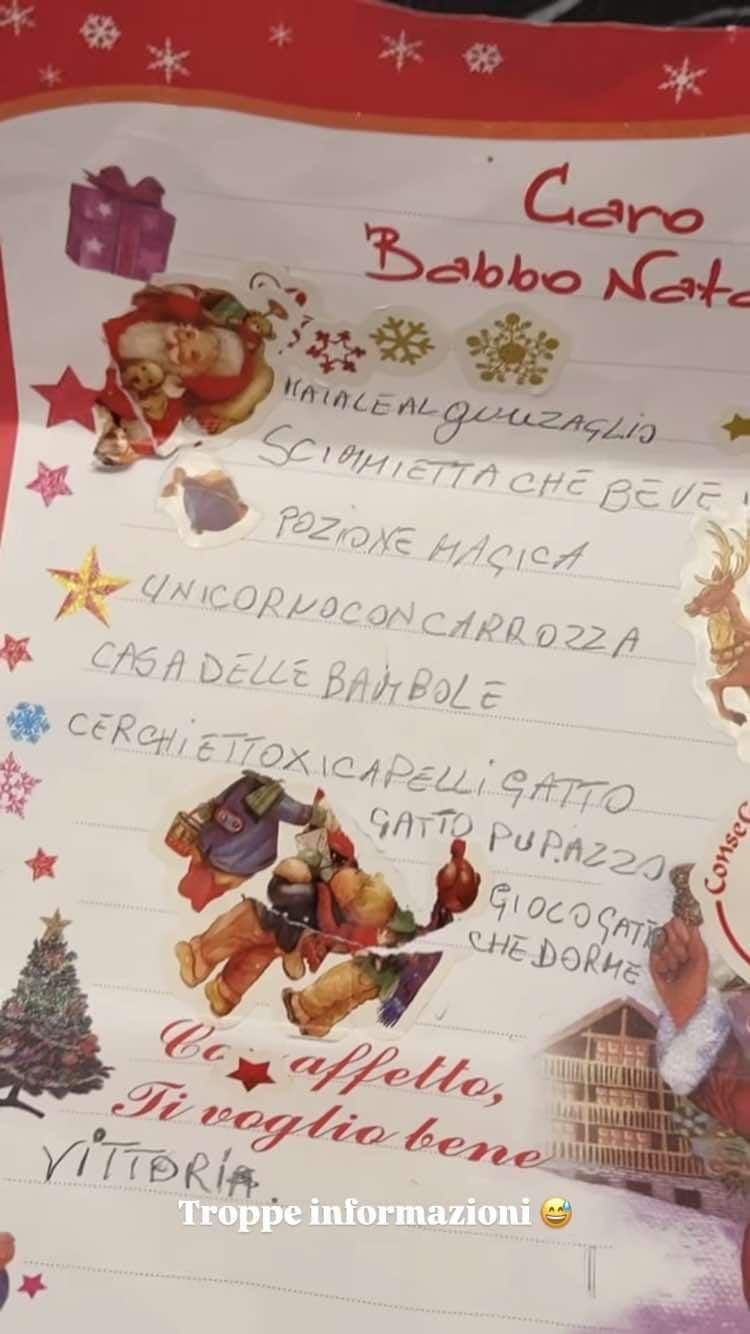 Caro
Babbo Nata
MAIALE AL GUINZAGLIO
SCIMMIETTA CHE BEVE
POZIONE MAGICA
UNICORNO CON CARROZZA
CASA DELLE BAMBOLE
CERCHIETTO X I CAPELLI GATTO
GATTO PUPAZZO
GIOCO GATTO
CHE DORME
Conseg
affetto,
Ti voglio bene
VITTORIA
Troppe informazioni 😅